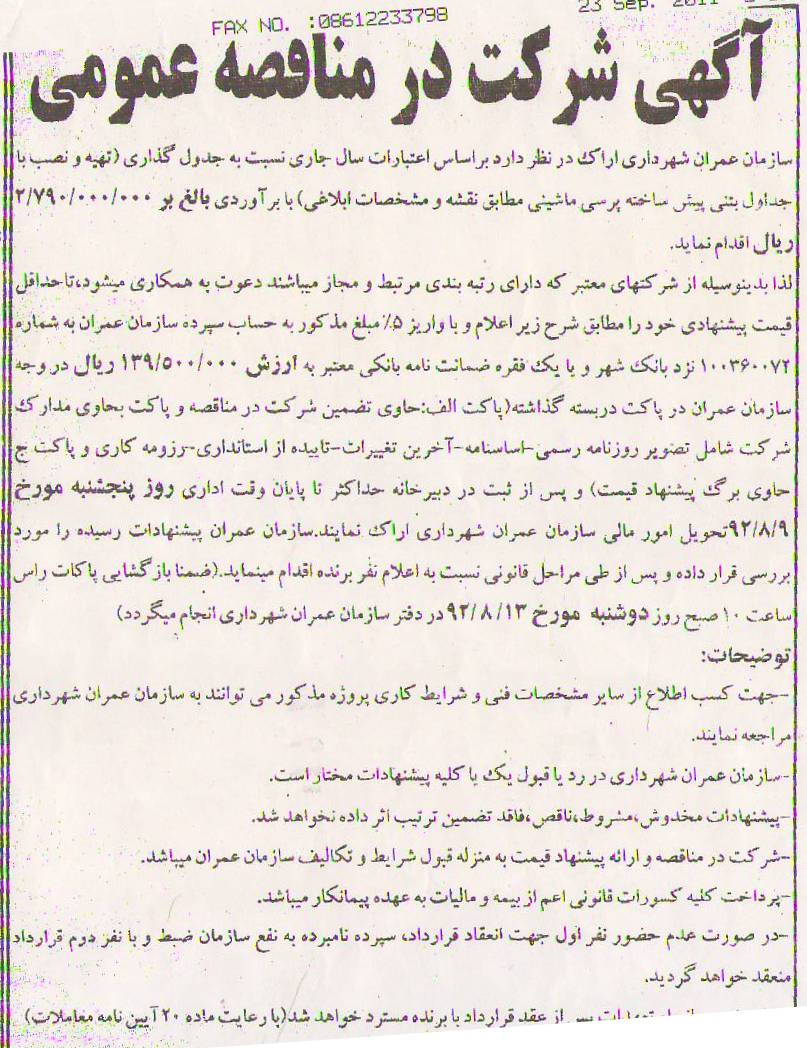 23 Sep. 2011
FAX NO. :08612233798
آگهی شرکت در مناقصه عمومی
سازمان عمران شهرداری اراک در نظر دارد براساس اعتبارات سال جاری نسبت به جدول گذاری (تهیه و نصب با
جداول بتنی پیش ساخته پرسی ماشینی مطابق نقشه و مشخصات ابلاغی) با برآوردی بالغ بر ۲/۷۹۰/۰۰۰/۰۰۰
ریال اقدام نماید.
لذا بدینوسیله از شرکتهای معتبر که دارای رتبه بندی مرتبط و مجاز میباشند دعوت به همکاری میشود،تا حداقل
قیمت پیشنهادی خود را مطابق شرح زیر اعلام و با واریز ۵٪ مبلغ مذکور به حساب سپرده سازمان عمران به شماره
۱۰۰۳۶۰۰۷۲ نزد بانک شهر و یا یک فقره ضمانت نامه بانکی معتبر به ارزش ۱۳۹/۵۰۰/۰۰۰ ریال در وجه
سازمان عمران در پاکت دربسته گذاشته(پاکت الف:حاوی تضمین شرکت در مناقصه و پاکت بحاوی مدارک
شرکت شامل تصویر روزنامه رسمی-اساسنامه-آخرین تغییرات-تاییده از استانداری-رزومه کاری و پاکت ج
حاوی برگ پیشنهاد قیمت) و پس از ثبت در دبیرخانه حداکثر تا پایان وقت اداری روز پنجشنبه مورخ
۹۲/۸/۹تحویل امور مالی سازمان عمران شهرداری اراک نمایند.سازمان عمران پیشنهادات رسیده را مورد
بررسی قرار داده و پس از طی مراحل قانونی نسبت به اعلام نفر برنده اقدام مینماید.(ضمنا بازگشایی پاکات راس
ساعت ۱۰ صبح روز دوشنبه مورخ ۹۲/۸/۱۳ در دفتر سازمان عمران شهرداری انجام میگردد)
توضیحات:
-جهت کسب اطلاع از سایر مشخصات فنی و شرایط کاری پروژه مذکور می توانند به سازمان عمران شهرداری
مراجعه نمایند.
-سازمان عمران شهرداری در رد یا قبول یک یا کلیه پیشنهادات مختار است.
-پیشنهادات مخدوش،مشروط،ناقص،فاقد تضمین ترتیب اثر داده نخواهد شد.
-شرکت در مناقصه و ارائه پیشنهاد قیمت به منزله قبول شرایط و تکالیف سازمان عمران میباشد.
-پرداخت کلیه کسورات قانونی اعم از بیمه و مالیات به عهده پیمانکار میباشد.
-در صورت عدم حضور نفر اول جهت انعقاد قرارداد، سپرده نامبرده به نفع سازمان ضبط و با نفر دوم قرارداد
منعقد خواهد گردید.
پس از عقد قرارداد با برنده مسترد خواهد شد(با رعایت ماده ۲۰ آیین نامه معاملات)